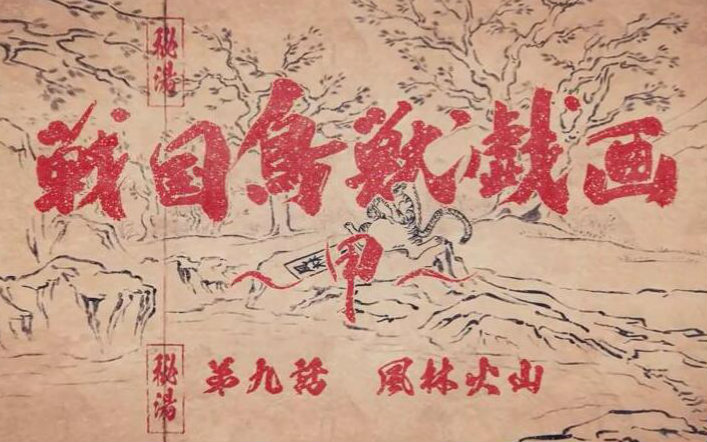 秘湯
戦国鳥獣戯画
〜甲〜
秘湯
第九話 風林火山